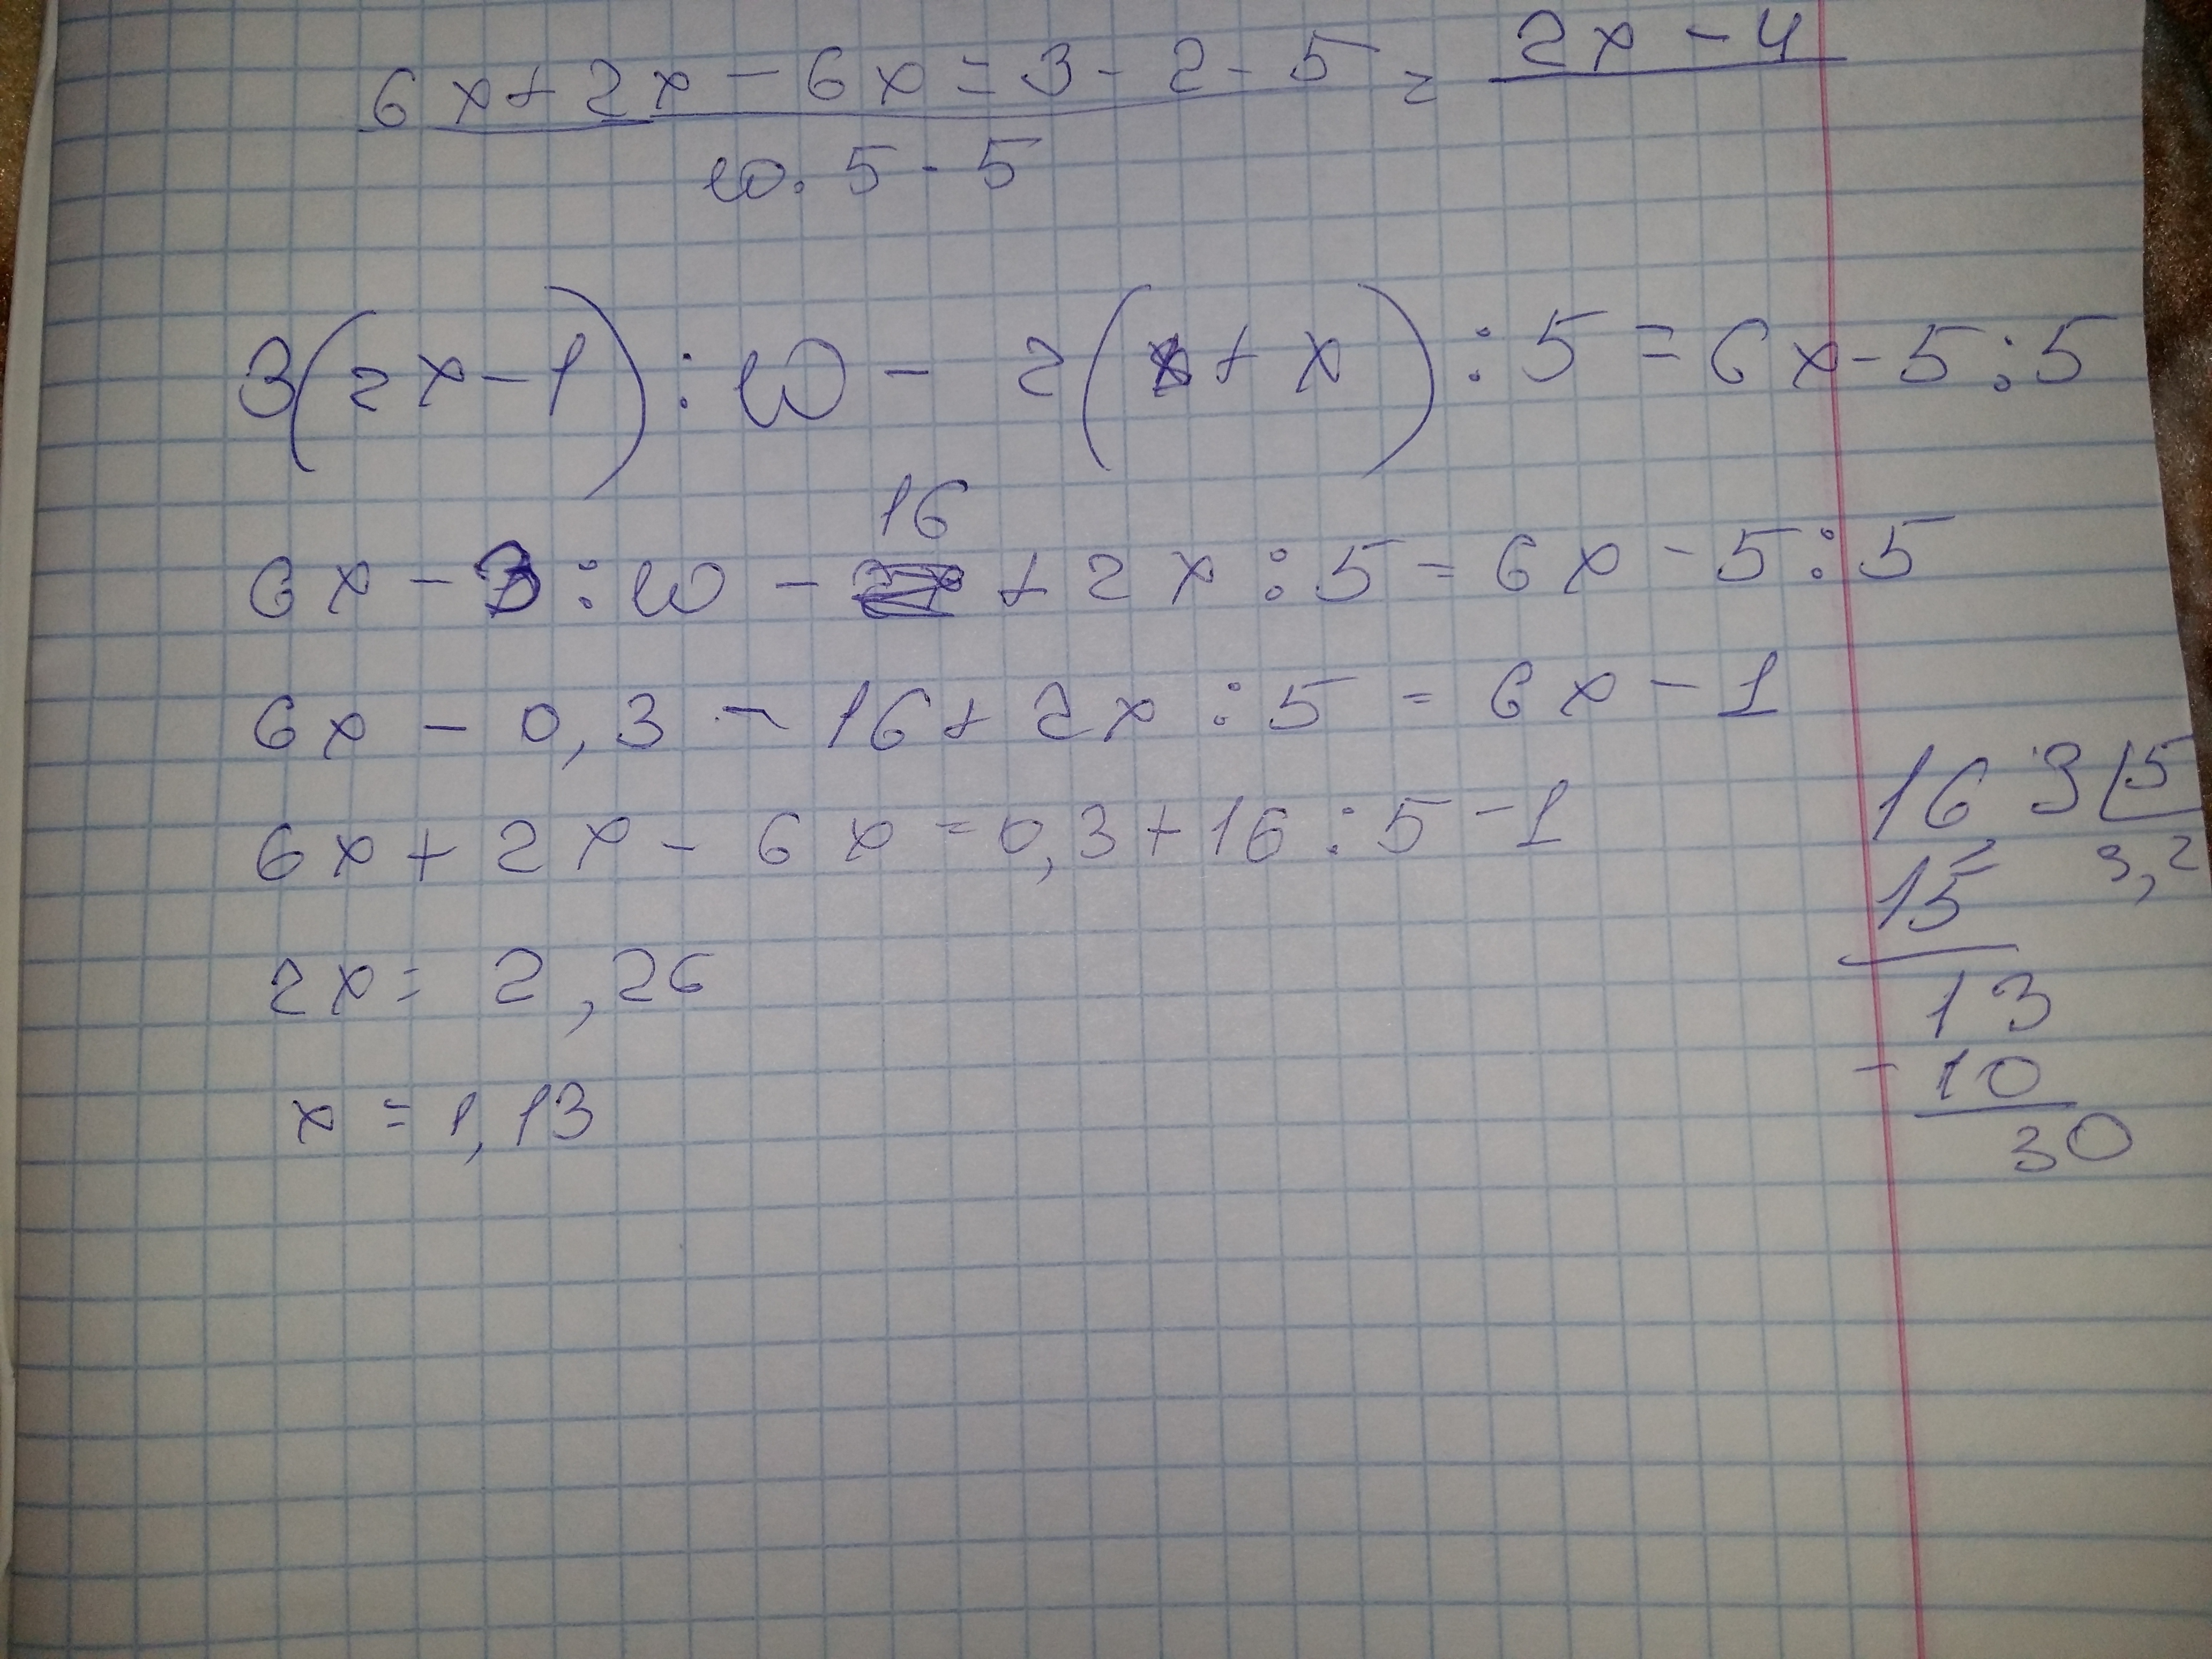 6x+2x-6x=3-2-5 = 2x-4
10·5-5
3(2x-1):10-2(8+x):5=6x-5:5
16
6x-3:10-+2x:5=6x-5:5
6x-0,3-16+2x:5=6x-1
6x+2x-6x=0,3+16:5-1
2x=2,26
x=1,13
16,3 5
15 3,2
13
-10
30